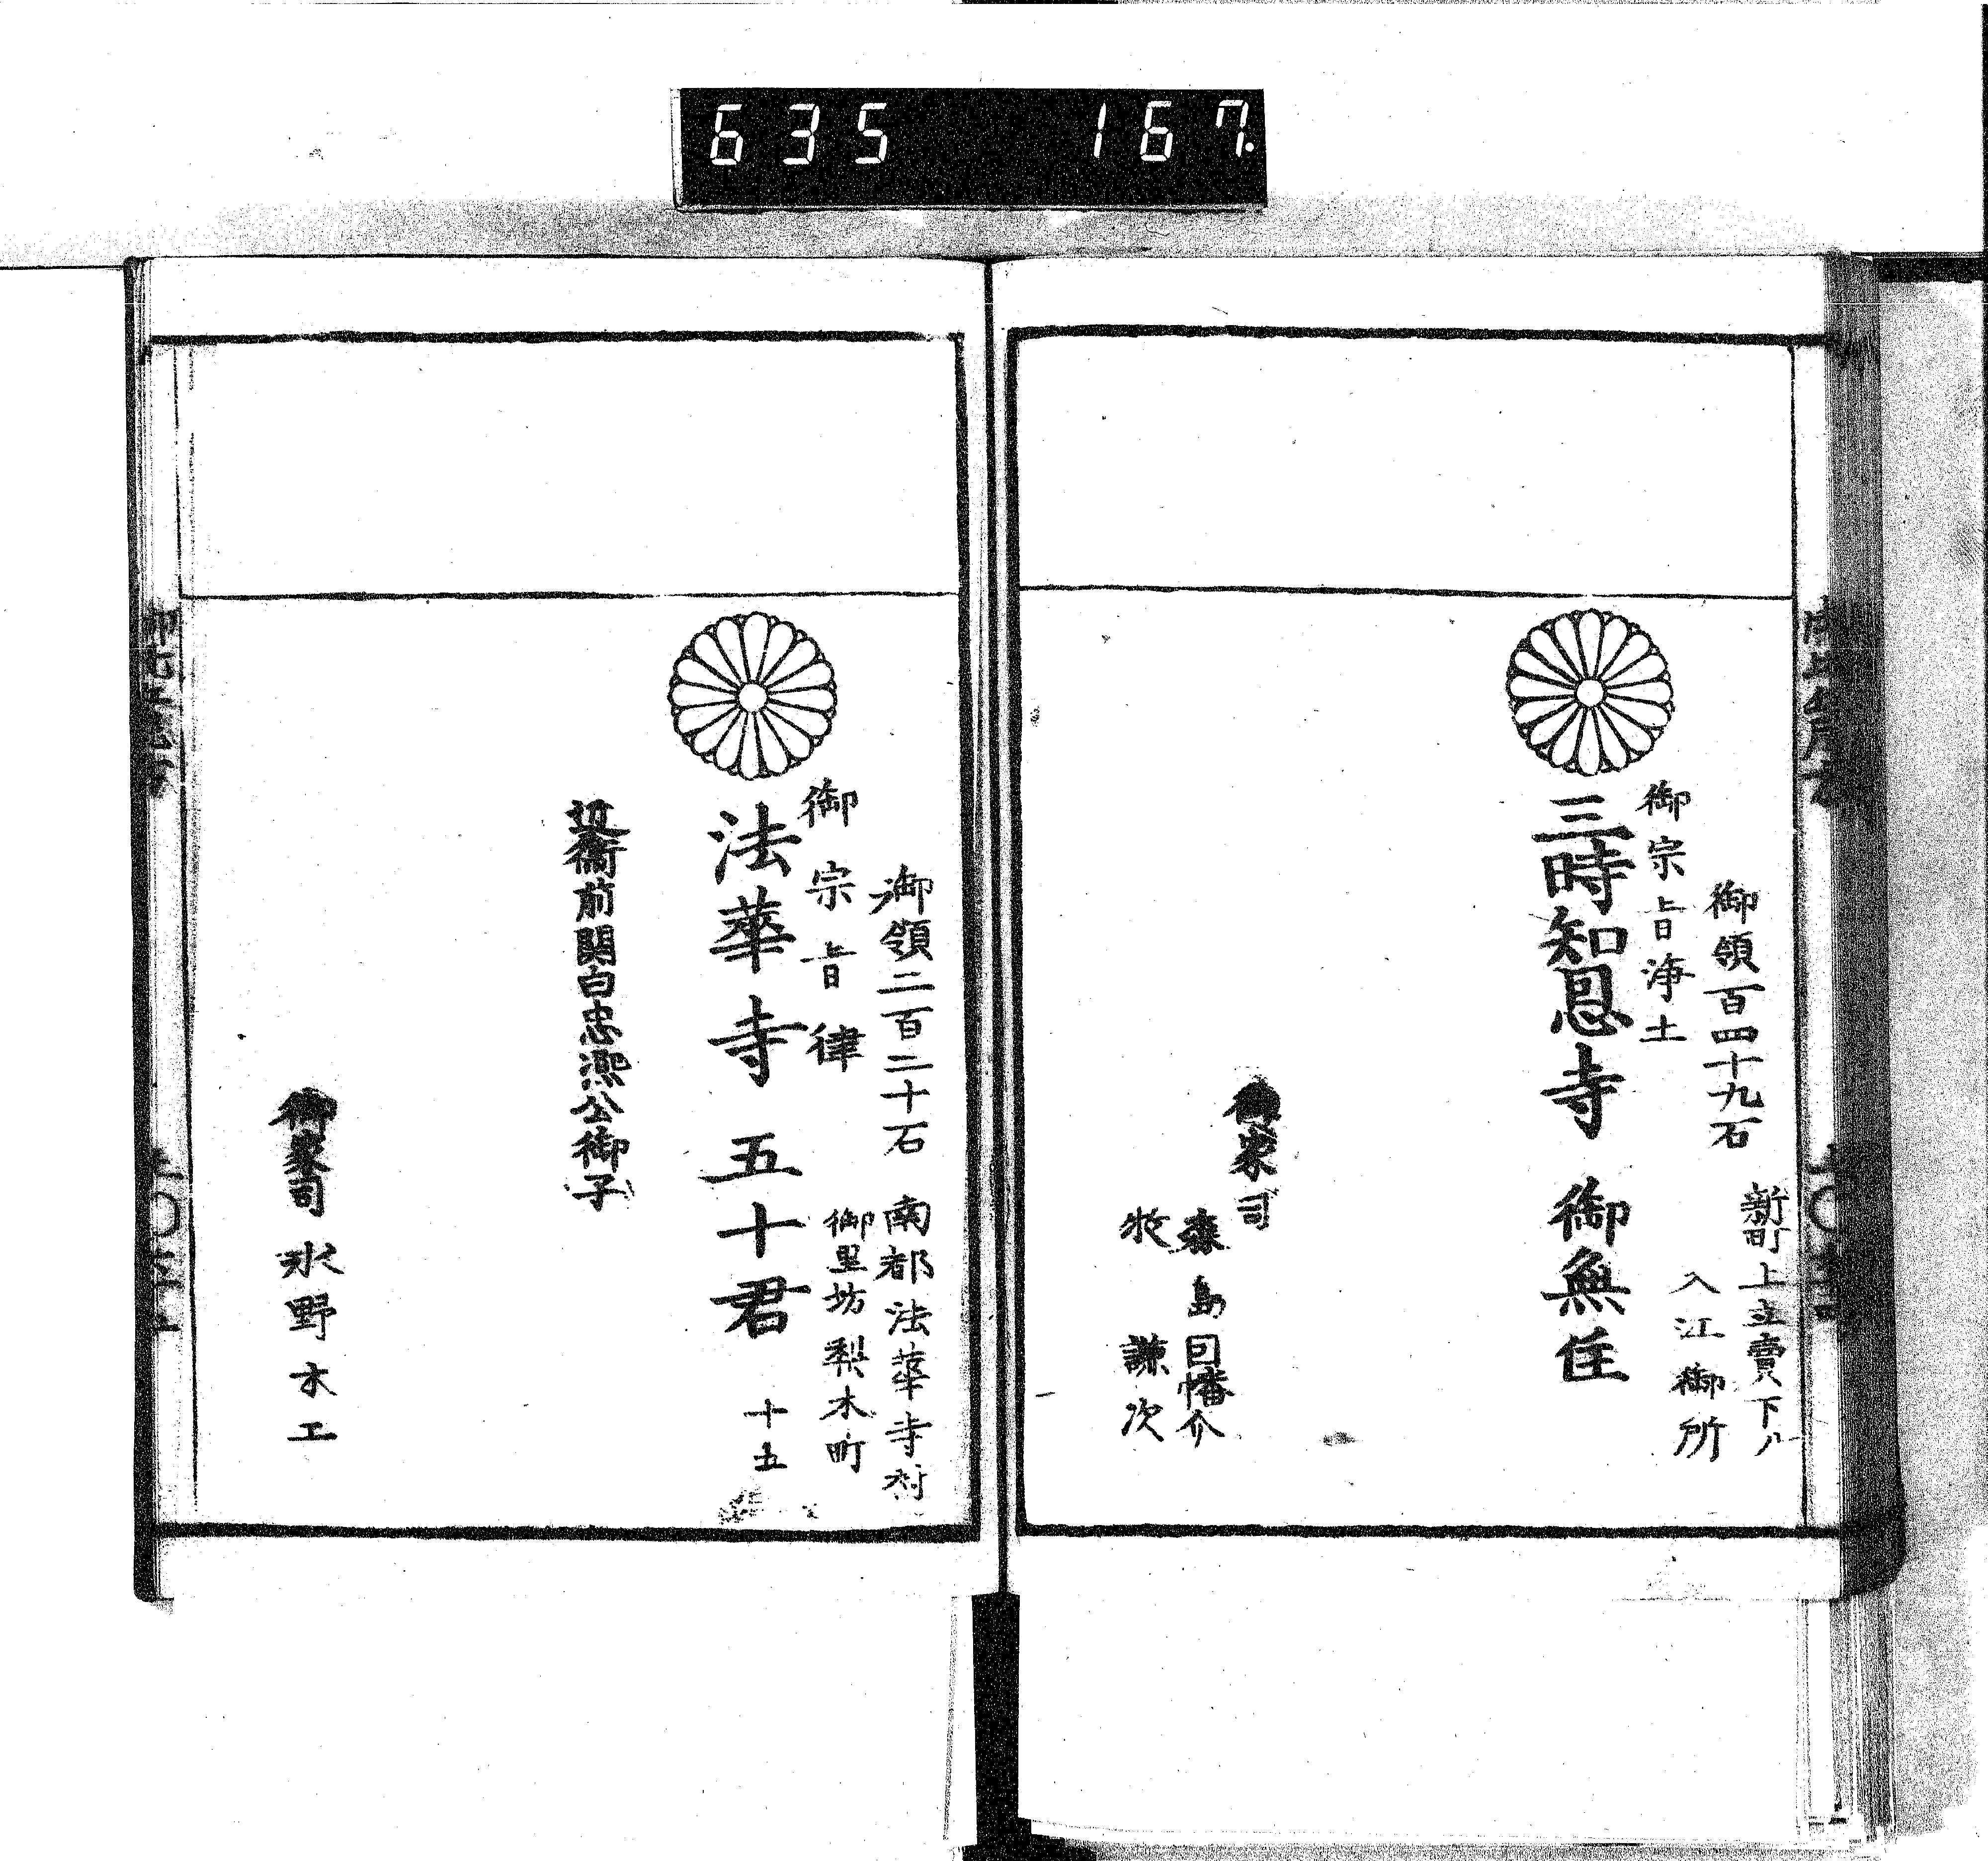 635 167.
新町上立賣下ル
入江御所
御領百四十九石
御宗旨浄土
三時知恩寺 御無住
御家司
森島因幡介
牧 謙次
南都法華寺村
御領二百二十石
御里坊梨木町
御宗旨律
法華寺 五十君 十五
前関白忠煕公御子
御家司 氷野木工